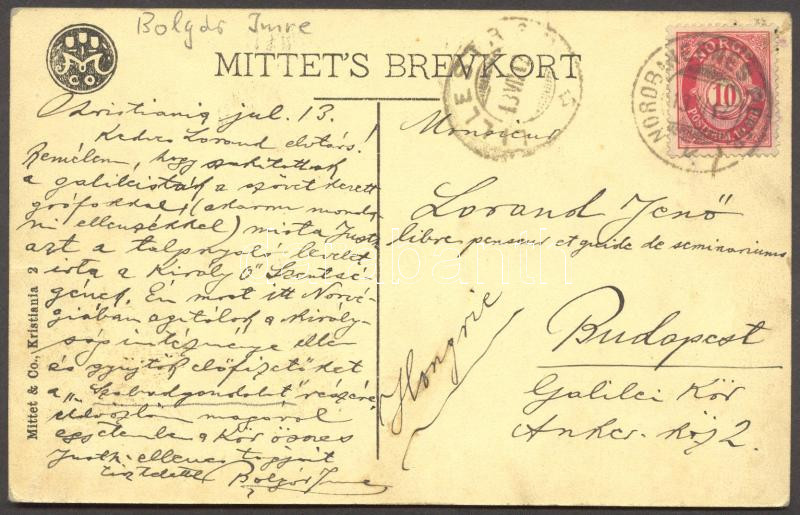 Bolgár Imre
MITTET'S BREVKORT
NORGE
10
Kristiania jul. 13.
Kedves Loránd elvtárs!
Remélem, hogy szakítottak
a galileisták a szövetkezett
grófokkal (akarom monda-
ni ellenzékkel) mióta Justh
azt a talpnyaló levelet
írta a Király Ő Szentsé-
gének. Én most itt Norvé-
giában agitálok a király-
ság intézménye ellen
és gyűjtök előfizetőket
a „Szabadgondolat" részére
Üdvözlöm magával
egyetemben a Kör összes
Justh-ellenes tagjait
tisztelettel Bolgár Imre
Monsieur
Lorand Jenő
libre penseur et guide de seminariums
Budapest
Hongrie
Galilei Kör
Anker-köz 2.
Mittet & Co., Kristiania 2